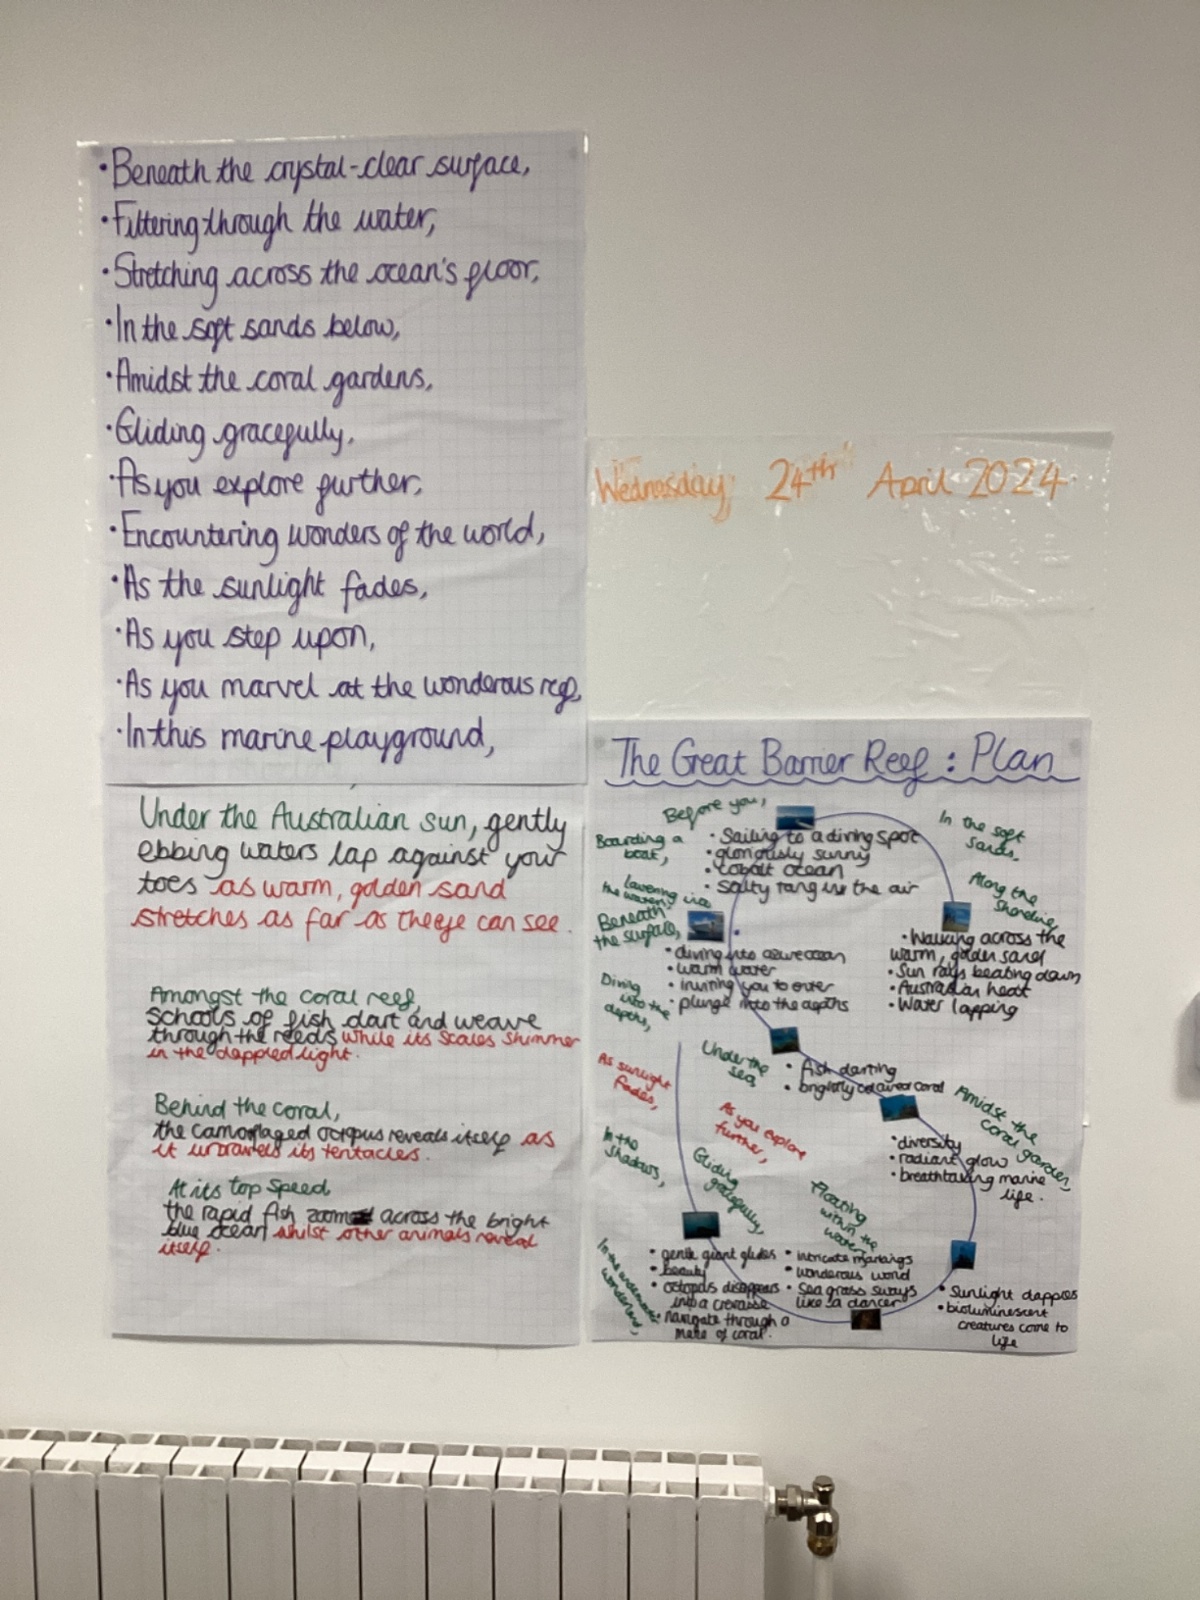 ·Beneath the crystal-clear surface,
·Filtering through the water,
·Stretching across the ocean's floor,
·In the soft sands below,
·Amidst the coral gardens,
·Gliding gracefully,
·As you explore further,
·Encountering wonders of the world,
·As the sunlight fades,
·As you step upon,
·As you marvel at the wonderous reef,
·In this marine playground,
Under the Australian sun, gently
ebbing waters lap against your
toes as warm, golden sand
stretches as far as the eye can see.
Amongst the coral reef,
schools of fish dart and weave
through the reeds while its scales shimmer
in the dappled light.
Behind the coral,
the camoflaged octopus reveals itself as
it unravels its tentacles.
At its top speed
the rapid fish zoom across the bright
blue ocean whilst other animals reveal
itself.
Wednesday, 24th April 2024
The Great Barrier Reef : Plan
Before you,
• Sailing to a diving spot
• gloriously sunny
• cobalt ocean
• salty tang in the air
In the soft
sands,
Along the
shoreline,
• Walking across the
warm, golden sand
• Sun rays beating down
• Australian heat
• Water lapping
Boarding a
boat,
Beneath
the surface,
• diving into azure ocean
• warm water
• inviting you to enter
• plunge into the depths
Diving
into the
depths,
Under the
sea,
• fish darting
• brightly coloured coral
As sunlight
fades,
As you explore
further,
Amidst the
coral garden,
• diversity
• radiant glow
• breathtaking marine
life.
In the
shadows,
Gliding
gracefully,
Floating
within the
water,
• gentle giant glides
• beauty
• octopus disappears
into a crevasse
• navigate through a
maze of coral.
• intricate markings
• wonderous world
• Sea grass sways
like a dancer
• Sunlight dapples
• bioluminescent
creatures come to
life